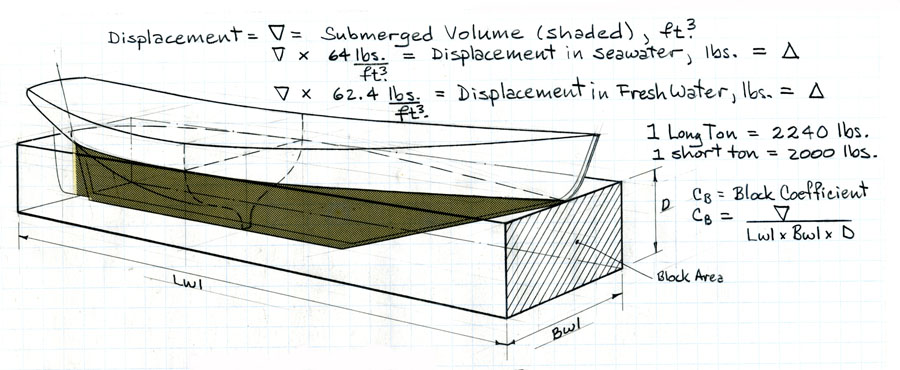 Displacement = ∇ = Submerged Volume (shaded), ft.³
∇ × 64 lbs./ft.³ = Displacement in seawater, lbs. = Δ
∇ × 62.4 lbs./ft.³ = Displacement in Fresh Water, lbs. = Δ
1 Long Ton = 2240 lbs.
1 short ton = 2000 lbs.
D
C_B = Block Coefficient
C_B = ∇ / Lwl × Bwl × D
Block Area
Lwl
Bwl